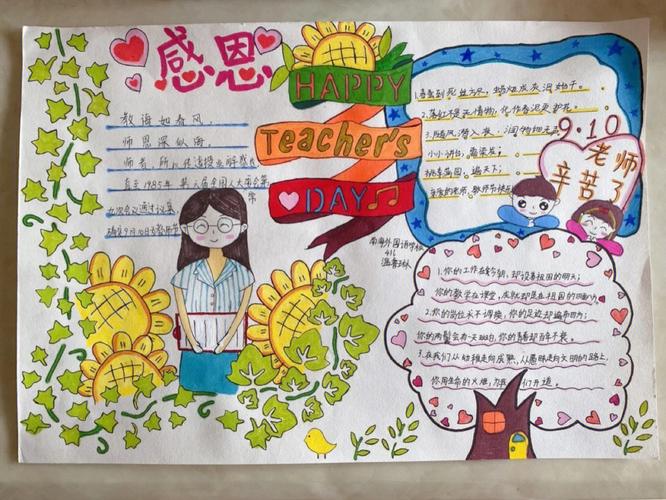 感恩
教诲如春风，
师恩深似海
师者，所以传道授业解惑也
直至1985年，第六届全国人大常委第
九次会议通过议案，
确定9月10日为教师节
HAPPY
Teacher's
DAY
南海外国语学校
416
1.春蚕到死丝方尽，蜡炬成灰泪始干。
2.落红不是无情物，化作春泥更护花。
3.随风潜入夜，润物细无声
小小讲台，
桃李满园，遍天下；
辛苦的老师，教师节快乐
9.10
老师
辛苦了
1.你的工作在今朝，却设春祖国的明天；
你的教学在课堂，成就却是在祖国的四面八方
2.你的岗位永不调换，你的足迹却遍布四方；
你的两鬓会有一天斑白，你的青春却百年不衰。
3.在我们从幼稚走向成熟，从愚昧走向文明的路上，
你用生命的火炬，为我们开道